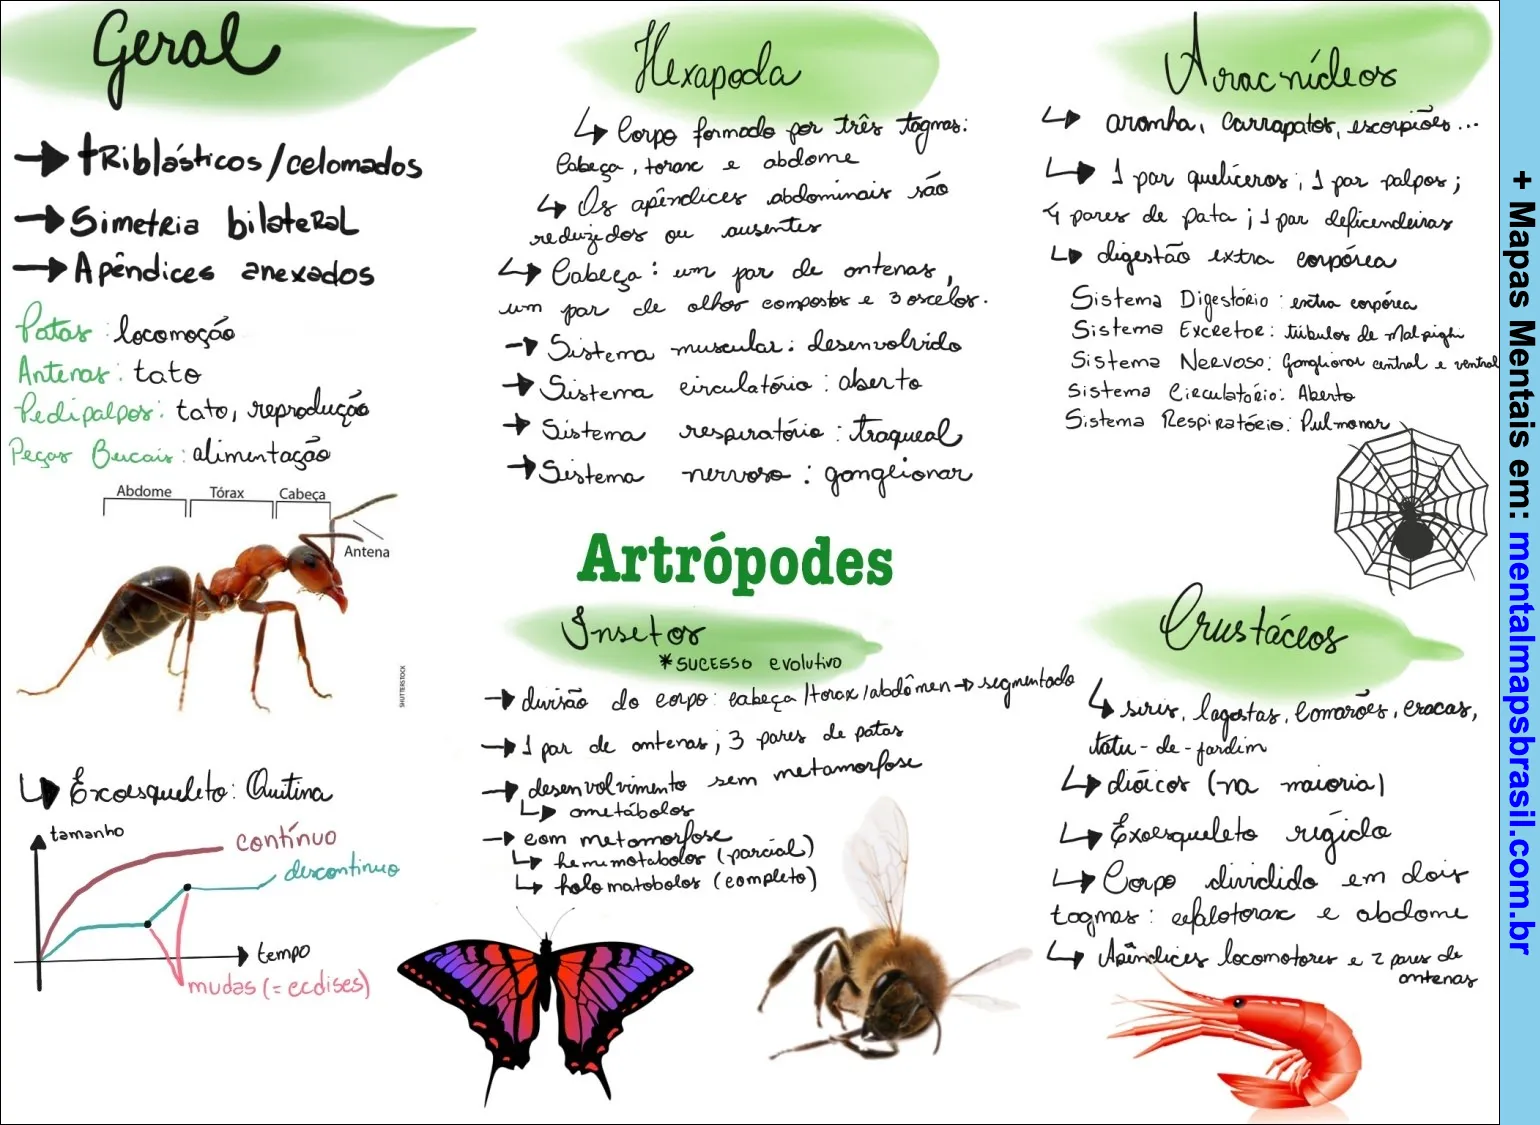 Geral
→ tRiblásticos/celomados
→ Simetria bilateral
→ Apêndices anexados
Patas: locomoção
Antenas: tato
Pedipalpos: tato, reprodução
Peças Bucais: alimentação
Abdome Tórax Cabeça
Antena
SHUTTERSTOCK
↳ Exoesqueleto: Quitina
tamanho
contínuo
descontinuo
tempo
mudas (= ecdises)
Hexapoda
↳ Corpo formado por três tagmas:
Cabeça, torax e abdome
↳ Os apêndices abdominais são
reduzidos ou ausentes
↳ Cabeça: um par de antenas,
um par de olhos compostos e 3 oscelos.
→ Sistema muscular: desenvolvido
→ Sistema circulatório: aberto
→ Sistema respiratório: traqueal
→ Sistema nervoso: ganglionar
Artrópodes
Insetos
*SUCESSO evolutivo
→ divisão do corpo: cabeça/torax/abdômen → segmentado
→ 1 par de antenas; 3 pares de patas
→ desenvolvimento sem metamorfose
↳ ametábolos
→ com metamorfose
↳ hemimotabolos (parcial)
↳ holomatobolos (completo)
Aracnídeos
↳ aranha, carrapatos, escorpiões...
↳ 1 par quelíceros; 1 par palpos;
4 pares de pata; 1 par deficendeiras
↳ digestão extra corpórea
Sistema Digestório: extra corpórea
Sistema Excretor: túbulos de Malpighi
Sistema Nervoso: Ganglionar central e ventral
Sistema Circulatório: Aberto
Sistema Respiratório: Pulmonar
Crustáceos
↳ siris, lagostas, camarões, cracas,
tatu-de-jardim
↳ dióicos (na maioria)
↳ Exoesqueleto rígido
↳ Corpo dividido em dois
tagmas: cefalotorax e abdome
↳ Apêndices locomotores e 2 pares de
antenas
+ Mapas Mentais em: mentalmapsbrasil.com.br